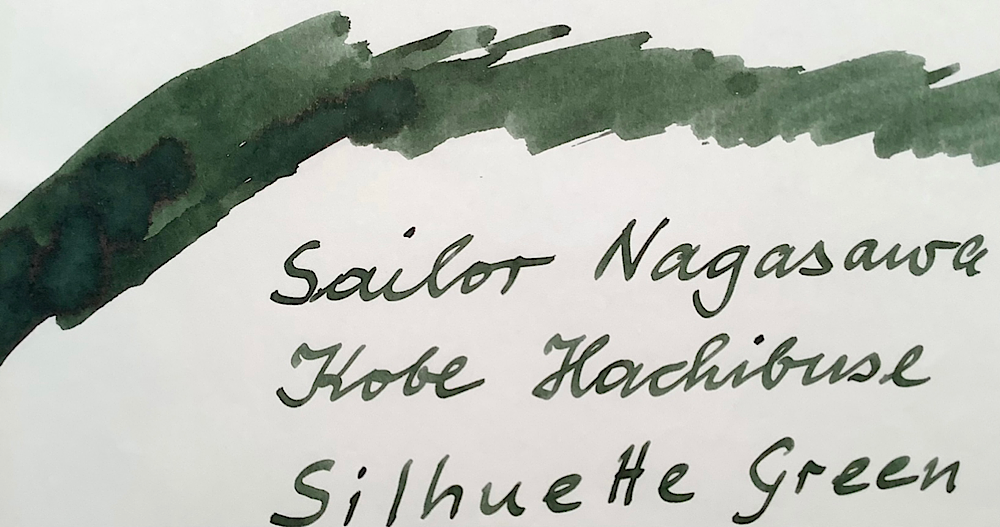 Sailor Nagasawa
Kobe Hachibuse
Silhuette Green